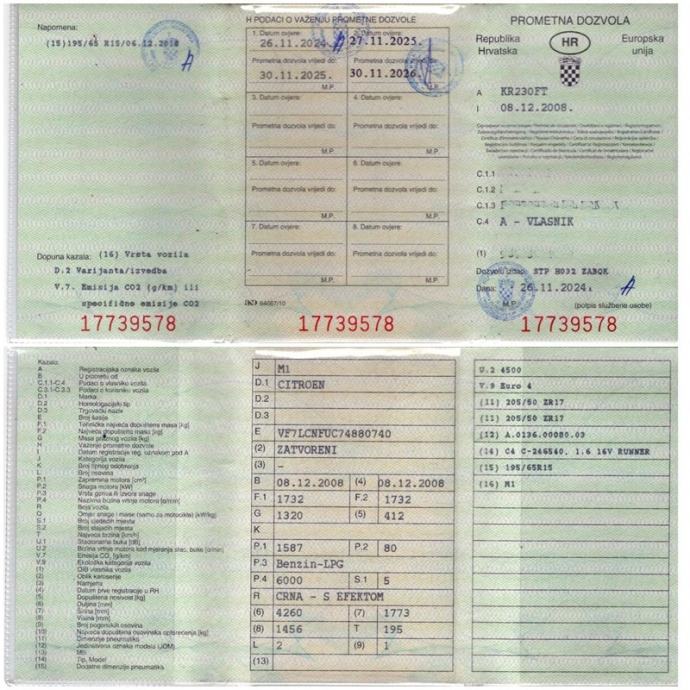 Napomena:
(15)195/65 R15/06.12.2018
Dopuna kazala: (16) Vrsta vozila
D.2 Varijanta/izvedba
V.7. Emisija CO2 (g/km) ili
specifične emisije CO2
17739578
H PODACI O VAŽENJU PROMETNE DOZVOLE
1. Datum ovjere: 2. Datum ovjere:
26.11.2024. 27.11.2025.
Prometna dozvola vrijedi do: Prometna dozvola vrijedi do:
30.11.2025. 30.11.2026.
M.P. M.P.
3. Datum ovjere: 4. Datum ovjere:
Prometna dozvola vrijedi do: Prometna dozvola vrijedi do:
M.P. M.P.
5. Datum ovjere: 6. Datum ovjere:
Prometna dozvola vrijedi do: Prometna dozvola vrijedi do:
M.P. M.P.
7. Datum ovjere: 8. Datum ovjere:
Prometna dozvola vrijedi do: Prometna dozvola vrijedi do:
M.P. M.P.
17739578
PROMETNA DOZVOLA
Republika Hrvatska HR Europska unija
A KR230FT
I 08.12.2008.
C.1.1
C.1.2
C.1.3
C.4 A - VLASNIK
(1)
Dozvolu izdao: STP H032 ZABOK
Dana: 26.11.2024.
M.P. (potpis službene osobe)
17739578
Kazalo:
A Registracijska oznaka vozila
B U prometu od
C.1.1-C.4 Podaci o vlasniku vozila
C.3.1-C.3.3 Podaci o korisniku vozila
D.1 Marka
D.2 Homologacijski tip
D.3 Trgovački naziv
E Broj šasije
F.1 Tehnička najveća dopuštena masa [kg]
F.2 Najveća dopuštena masa [kg]
G Masa praznog vozila [kg]
H Važenje prometne dozvole
I Datum registracije reg. oznakom pod A
J Kategorija vozila
K Broj tipnog odobrenja
L Broj osovina
P.1 Zapremina motora [cm³]
P.2 Snaga motora [kW]
P.3 Vrsta goriva ili izvora snage
P.4 Nazivna brzina vrtnje motora [o/min]
R Boja vozila
Q Omjer snage i mase (samo za motocikle) [kW/kg]
S.1 Broj sjedećih mjesta
S.2 Broj stajaćih mjesta
T Najveća brzina [km/h]
U.1 Stacionarna buka [dB]
U.2 Brzina vrtnje motora kod mjerenja stac. buke [o/min]
V.7 Emisija CO₂ [g/km]
V.9 Ekološka kategorija vozila
(1) OIB vlasnika vozila
(2) Oblik karoserije
(3) Namjena
(4) Datum prve registracije u RH
(5) Dopuštena nosivost [kg]
(6) Duljina [mm]
(7) Širina [mm]
(8) Visina [mm]
(9) Broj pogonskih osovina
(10) Najveća dopuštena osovinska opterećenja [kg]
(11) Dimenzije pneumatika
(12) Jedinstvena oznaka modela (JOM)
(13) MB
(14) Tip, Model
(15) Dodatne dimenzije pneumatika
J M1
D.1 CITROEN
D.2
D.3
E VF7LCNFUC74880740
(2) ZATVORENI
(3) -
B 08.12.2008 (4) 08.12.2008
F.1 1732 F.2 1732
G 1320 (5) 412
K
P.1 1587 P.2 80
P.3 Benzin-LPG
P.4 6000 S.1 5
R CRNA - S EFEKTOM
(6) 4260 (7) 1773
(8) 1456 T 195
L 2 (9) 1
(13)
U.2 4500
V.9 Euro 4
(11) 205/50 ZR17
(11) 205/50 ZR17
(12) A.0136.00080.03
(14) C4 C-246540. 1.6 16V RUNNER
(15) 195/65R15
(16) M1